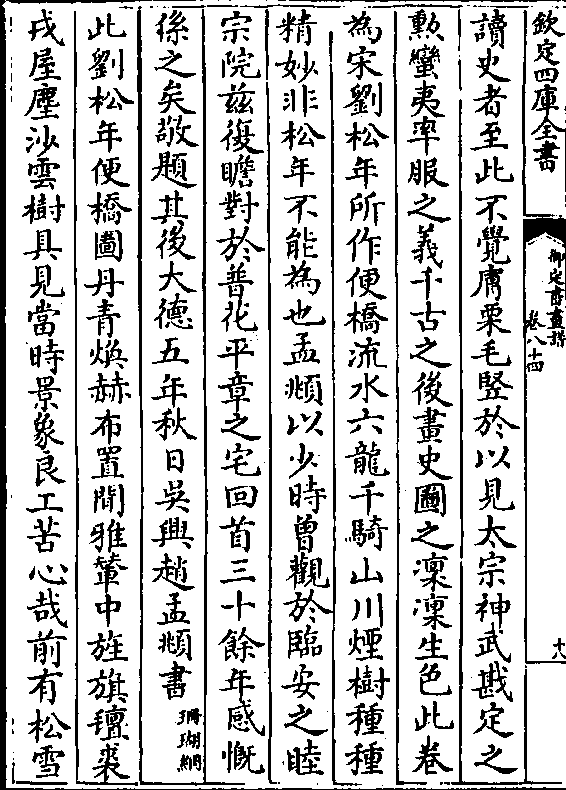 欽定四庫全書
御定書畫譜
卷八十四
十八
讀史者至此不覺膚栗毛竪於以見太宗神武戡定之
勲蠻夷率服之義千古之後畫史圖之凜凜生色此卷
為宋劉松年所作便橋流水六龍千騎山川煙樹種種
精妙非松年不能為也孟頫以少時曾觀於臨安之睦
宗院兹復瞻對於普化平章之宅回首三十餘年感慨
係之矣敬題其後大德五年秋日吳興趙孟頫書珊瑚網
此劉松年便橋圖丹青煥赫布置閒雅輦中旌旗氊裘
戎屋塵沙雲樹具見當時景象良工苦心哉前有松雪